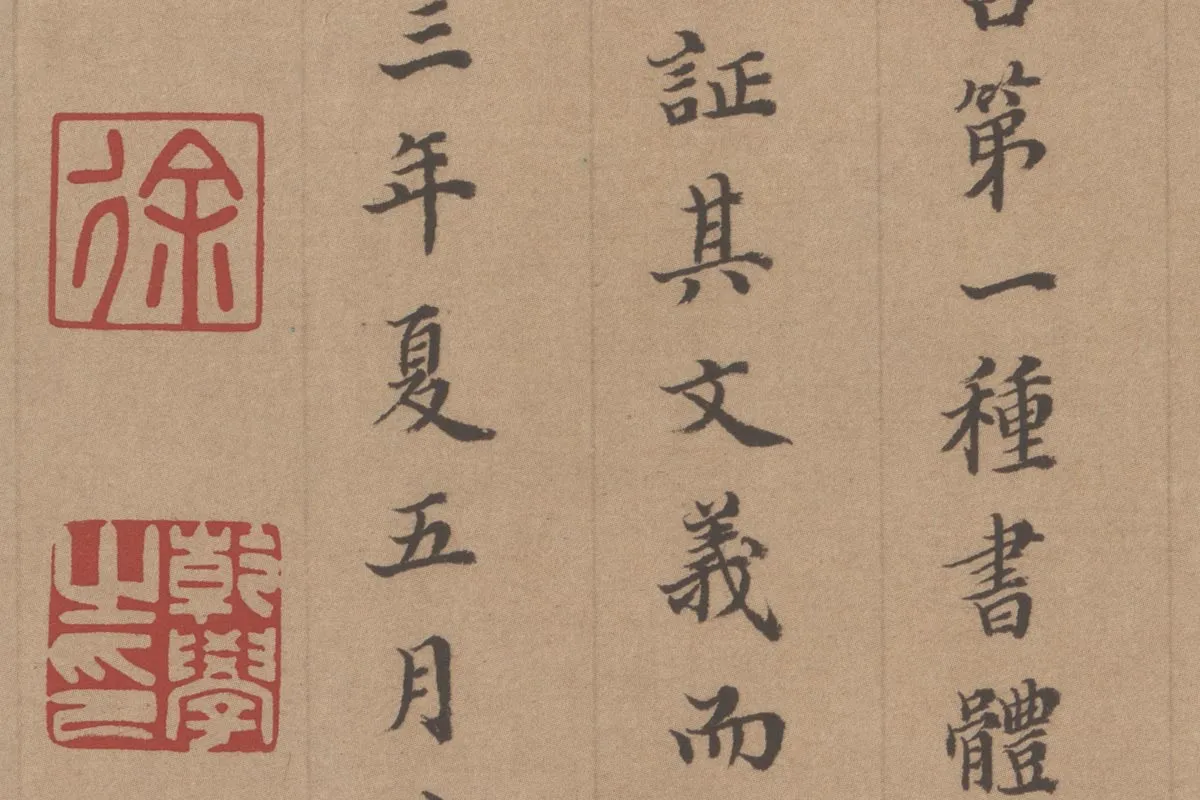 第一種書體
証其文義而
三年夏五月
徐
乾學之印